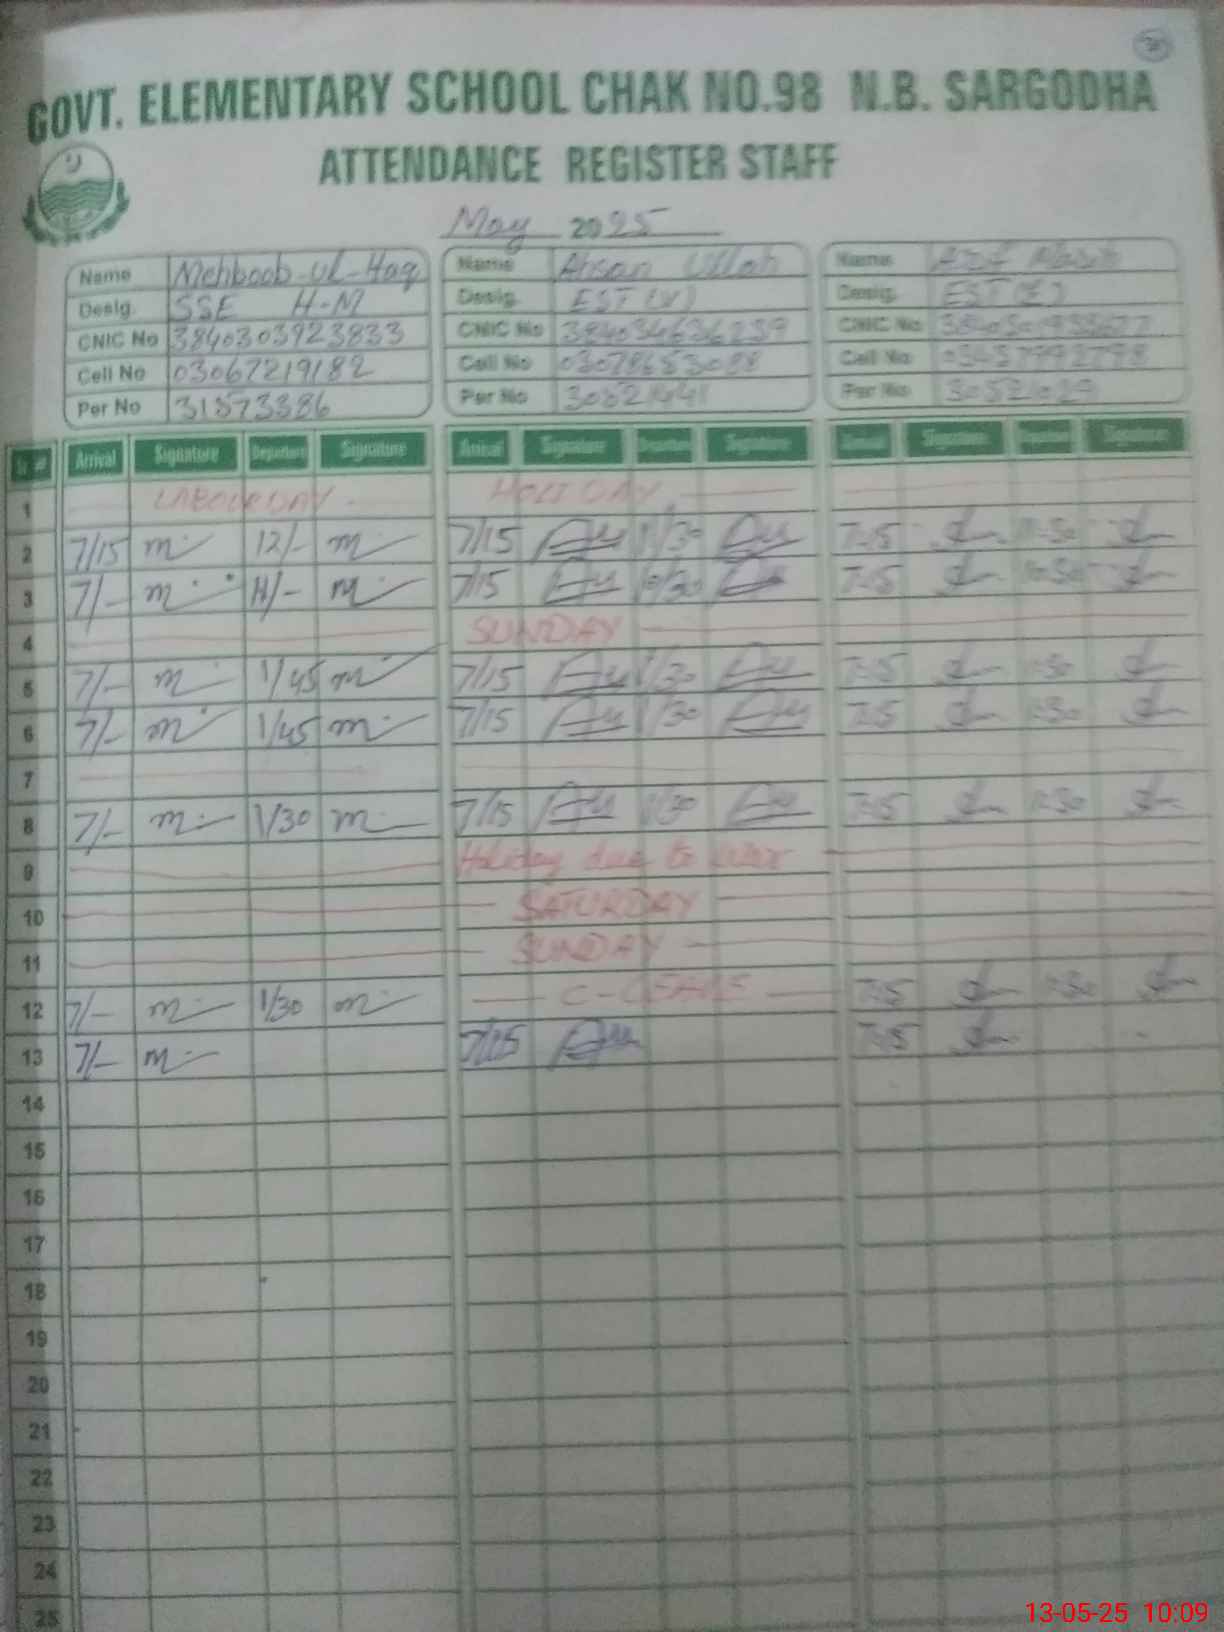 GOVT. ELEMENTARY SCHOOL CHAK NO.98 N.B. SARGODHA
ATTENDANCE REGISTER STAFF
May 2025
Name Mehboob-ul-Haq Name Ahsan Ullah Name
Desig. SSE H-M Desig. EST (V) Desig. EST (E)
CNIC No 3840303923833 CNIC No CNIC No
Cell No 03067219182 Cell No Cell No
Per No 31573386 Per No 30521441 Per No
Sr # Arrival Signature Departure Signature Arrival Signature Departure Signature Arrival Signature Departure Signature
1 LABOUR DAY HOLIDAY
2 7/15 12/- 7/15 7-15
3 7/- 11/- 7/15 10/30 7-15
4 SUNDAY
5 7/- 1/45 7/15 1/30 7-15 1-30
6 7/- 1/45 7/15 1/30 7-15 1-30
7
8 7/- 1/30 7/15 1/30 7-15 1-30
9 Holiday due to war
10 SATURDAY
11 SUNDAY
12 7/- 1/30 C-LEAVE 7-15 1-30
13 7/- 7/15 7-15
14
15
16
17
18
19
20
21
22
23
24
25
13-05-25 10:09